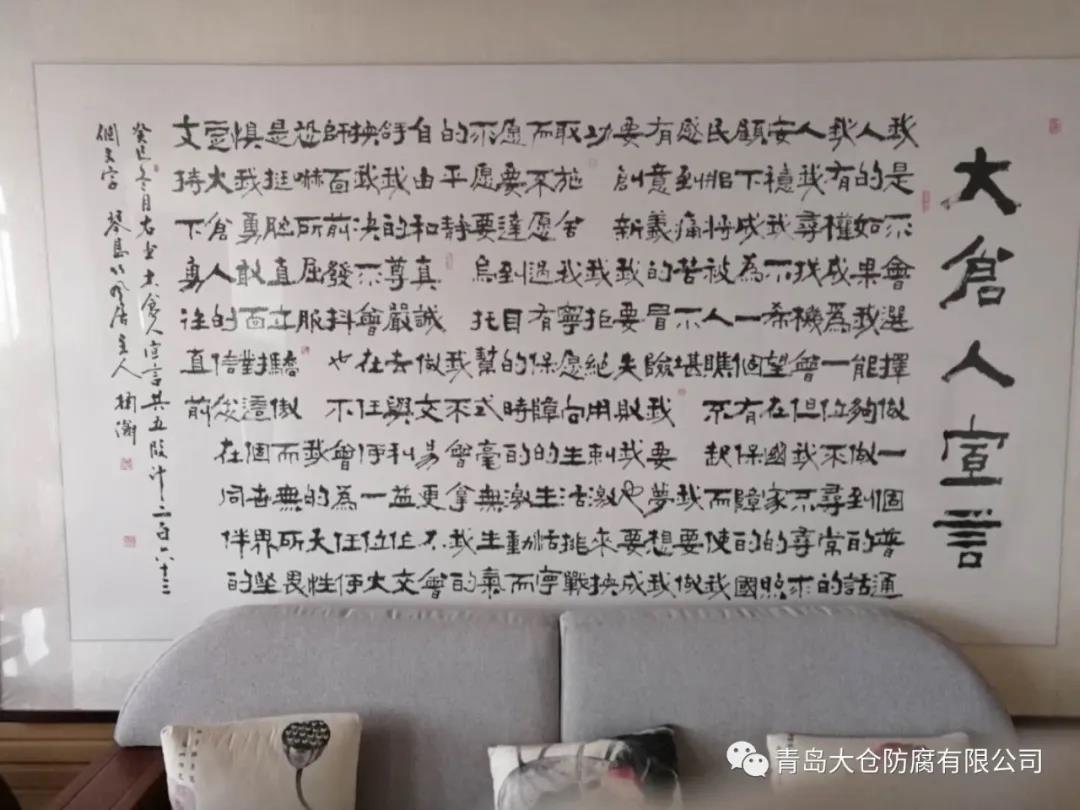 大倉人宣言
我是不會選擇做一個普通
人的如果我能夠做到的話
我有權成為一位不尋常的
人我尋找機會但我不尋求
安穩我不希望在國家的照
顧下成為一個有保障的國
民服將被人瞧不起而使我
感到痛苦不堪我要做
有意義的冒險我要夢想我
要創新我要失敗我也要成
功我拒絕用刺激來换
取施舍我寧愿向生活挑戰
而不愿過有保障的生活寧
愿要達到目的時的激動而
不愿要烏托幫式的毫無生氣
的平静我不會拿我的
自由和真誠做交易更不會
拿我的尊嚴去與利益作交
换我决不會在任何一位大
師面前發抖也不會為任何
恐嚇所屈服我的天性
是挺胆直立驕傲而無所畏
惧我勇敢面對這個世界堅
定大倉人的信念在同伴的
支持下勇往直前
癸巳冬月右書大倉人宣言共五段計二百六十三
個文字 琴島竹風居主人
青岛大仓防腐有限公司